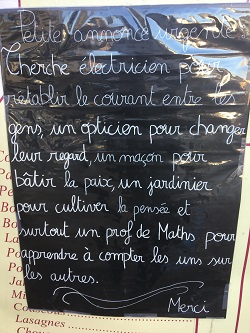 Petite annonce urgente
Cherche électricien pour
rétablir le courant entre les
gens, un opticien pour changer
leur regard, un maçon pour
bâtir la paix, un jardinier
pour cultiver la pensée et
surtout un prof de Maths pour
apprendre à compter les uns sur
les autres.
Merci
Lasagnes